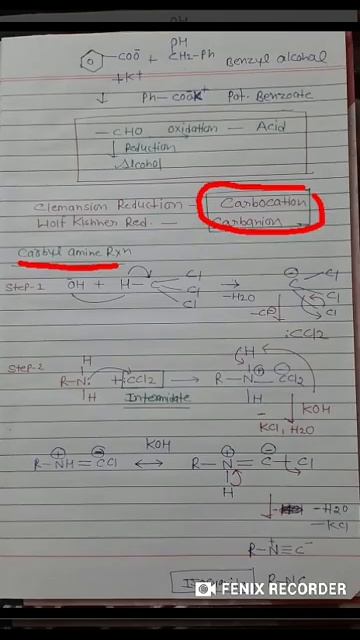 OH
COO⁻ + CH2-Ph Benzyl alcohal
+K⁺
↓ Ph — COOK⁺ Pot. Benzoate
—CHO oxidation — Acid
↓ Reduction
Alcohol
Clemansion Reduction — Carbocation
Wolf Kishner Red. — Carbanion
Carbyl amine Rxn
Step-1 OH + H—C Cl Cl Cl → -H2O C⁻ Cl Cl Cl
-Cl⁻
:CCl2
Step-2 R-N: H H + :CCl2 → R-N⁺-CCl2⁻ H H
Intermidate
KOH
KCl, H2O
R-NH⁺=CCl⁻ ↔ KOH R-N⁺=C⁻-Cl
H
-H2O
-KCl
R-N⁺≡C⁻
R-NC
FENIX RECORDER